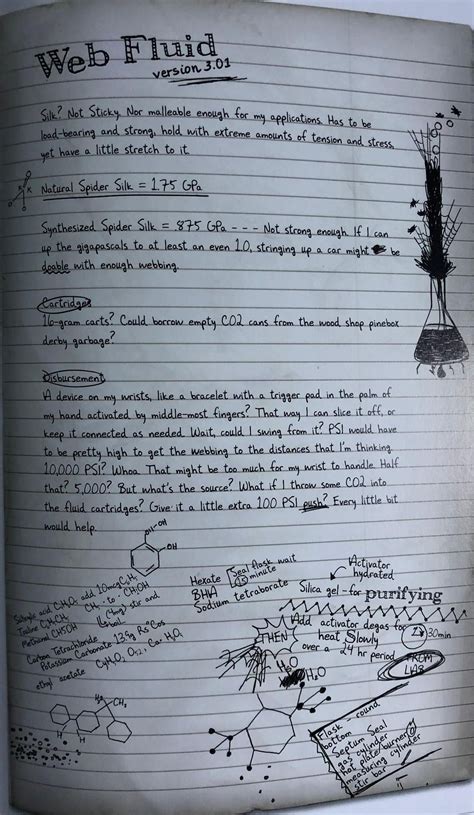 Web Fluid
version 3.01
Silk? Not Sticky. Nor malleable enough for my applications. Has to be
load-bearing and strong, hold with extreme amounts of tension and stress,
yet have a little stretch to it.
Natural Spider Silk = 1.75 GPa
Synthesized Spider Silk = .875 GPa - - - Not strong enough. If I can
up the gigapascals to at least an even 1.0, stringing up a car might be
doable with enough webbing.
Cartridges
16-gram carts? Could borrow empty CO2 cans from the wood shop pinebox
derby garbage?
Disbursement
A device on my wrists, like a bracelet with a trigger pad in the palm of
my hand activated by middle-most fingers? That way I can slice it off, or
keep it connected as needed. Wait, could I swing from it? PSI would have
to be pretty high to get the webbing to the distances that I'm thinking.
10,000 PSI? Whoa. That might be too much for my wrist to handle. Half
that? 5,000? But what's the source? What if I throw some CO2 into
the fluid cartridges? Give it a little extra 100 PSI push? Every little bit
would help.
OH
Salicylic acid C7H6O3 add 10mcg
Toluene C7H8
Methanol CH3OH
stir and
boil
Carbon Tetrachloride
Potassium Carbonate 139g
ethyl acetate
Hexate
BHA
Sodium tetraborate
Seal flask wait
45 minute
Activator
hydrated
Silica gel - for purifying
THEN
Add activator degas for 30min
heat Slowly
over a 24 hr period
H2O
H2O
FROM
LAB
CH3
H
H
Flask - round
bottom
Septum Seal
gas cylinder
hot plate/burner
measuring cylinder
stir bar